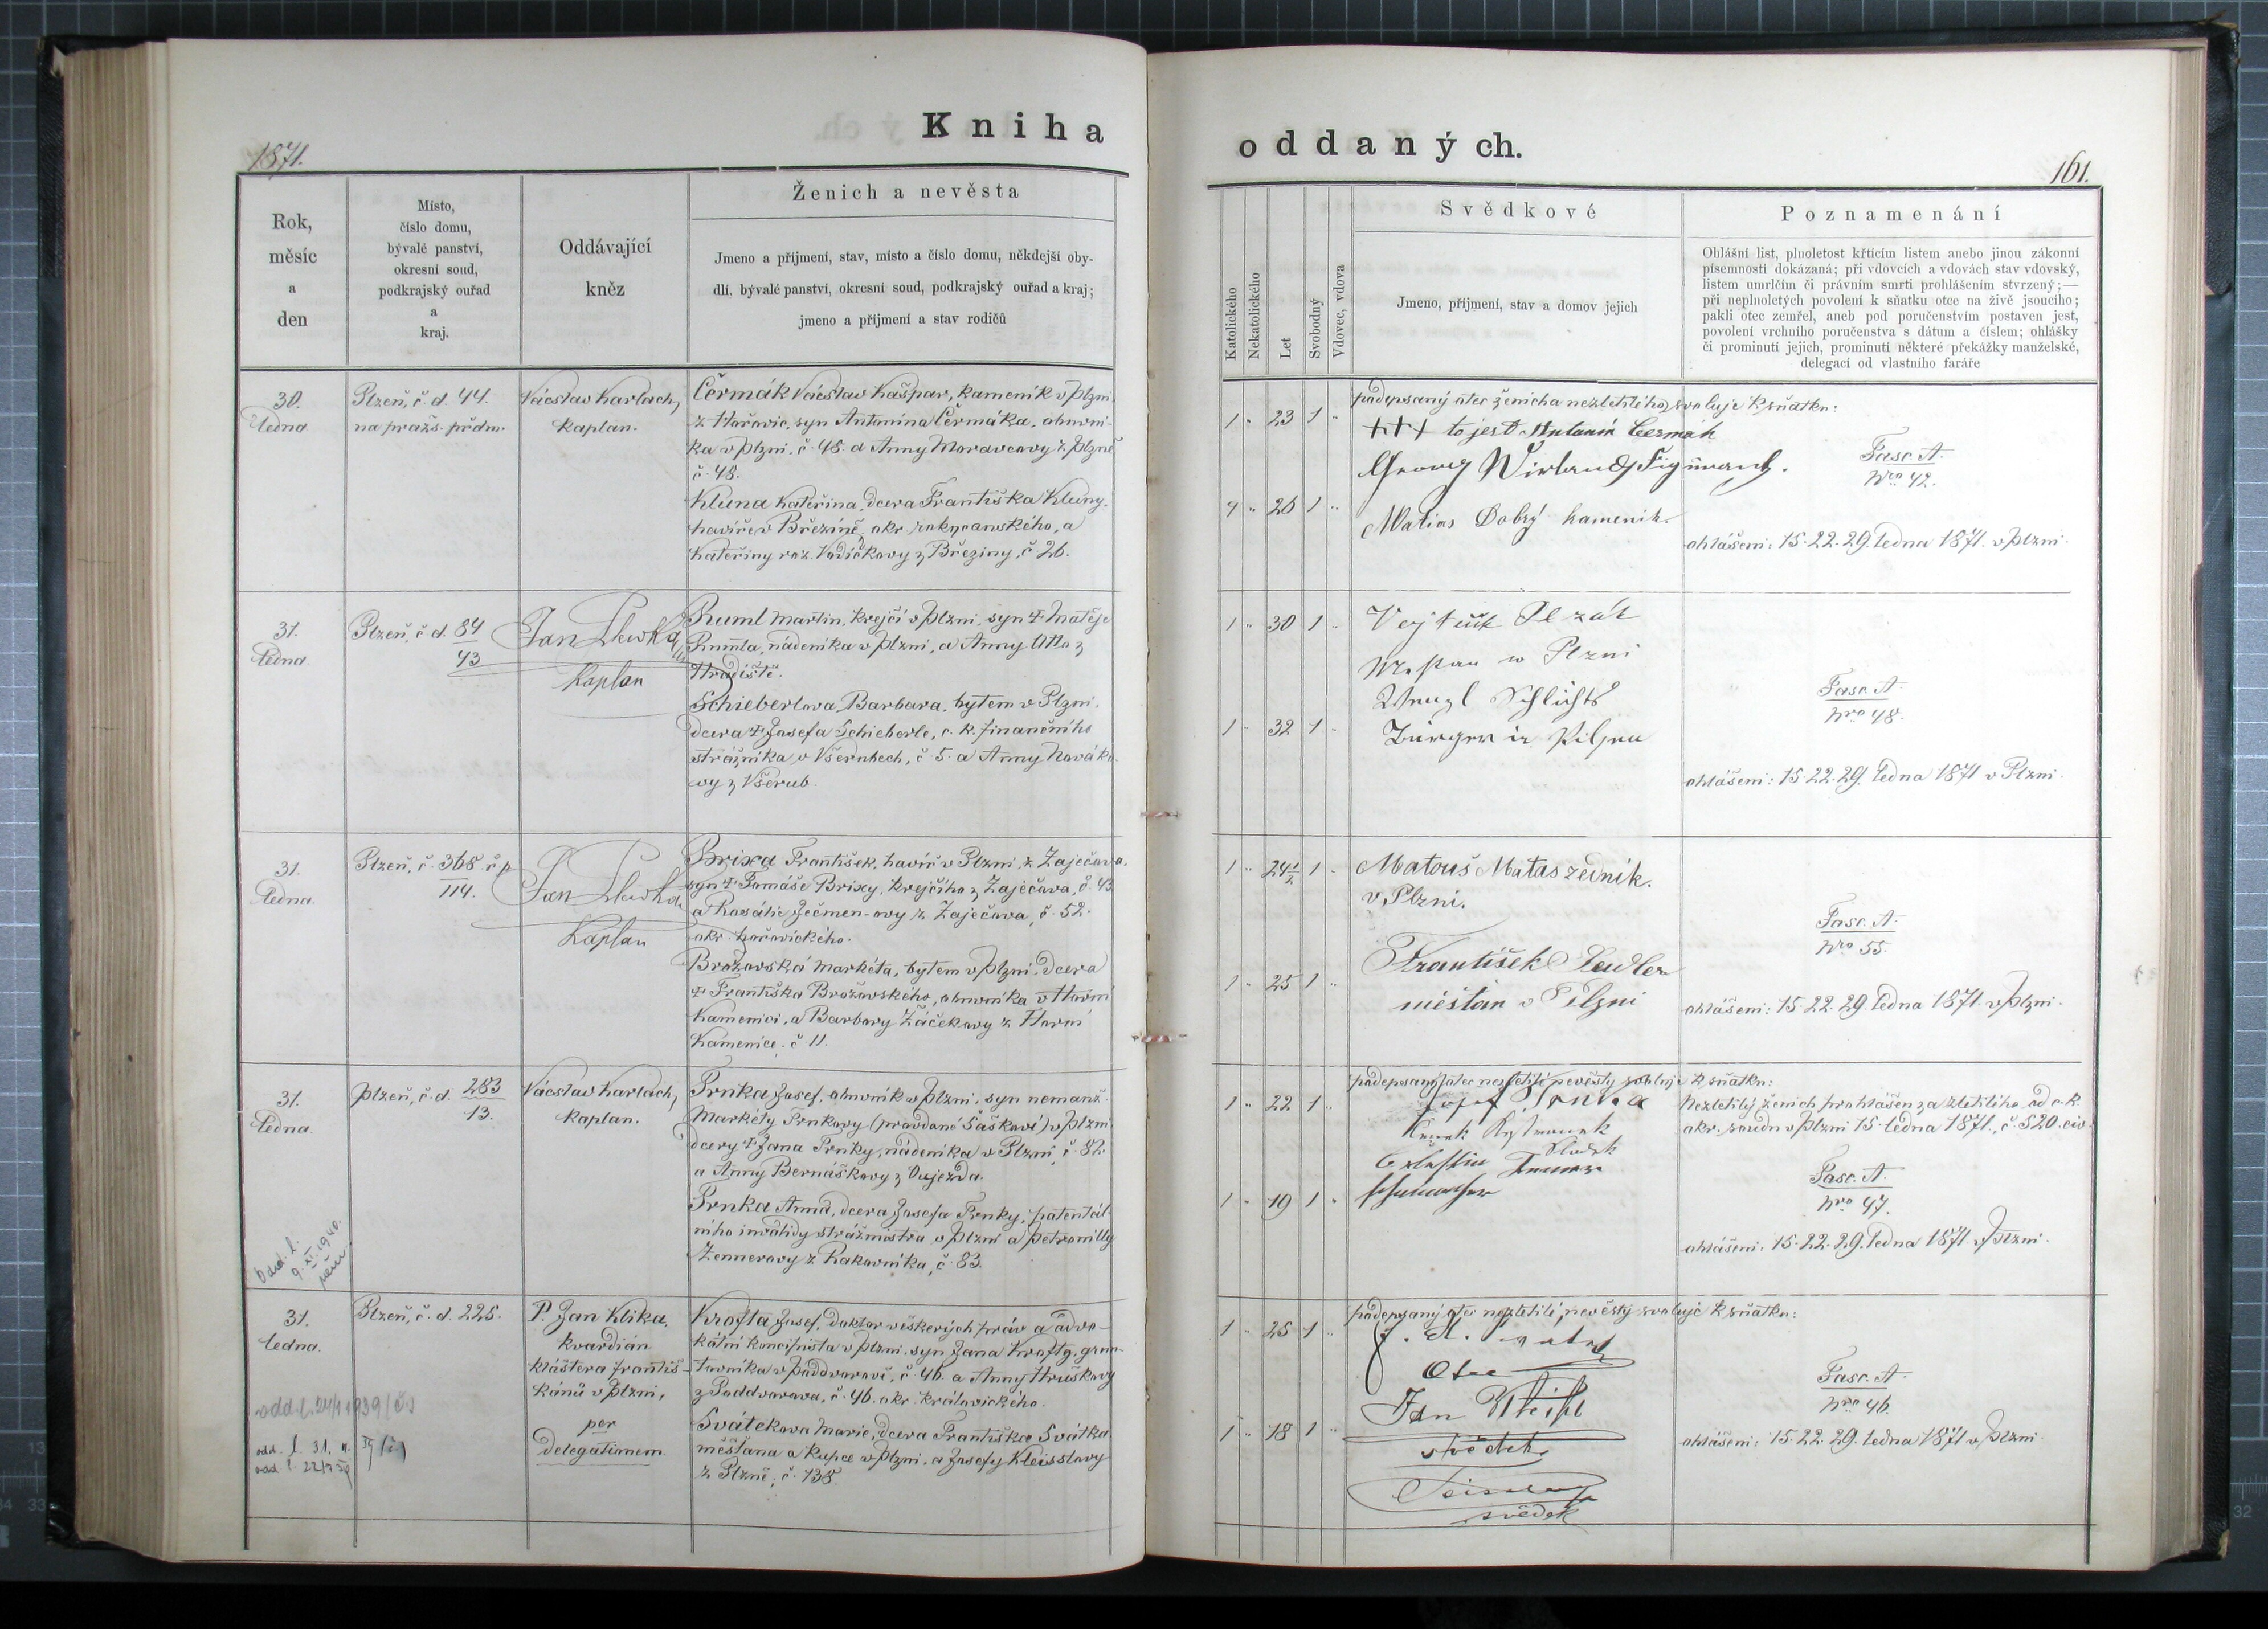 Kniha
oddaných.
1871.
161.
Rok,
měsíc
a
den
Místo,
číslo domu,
bývalé panství,
okresní soud,
podkrajský ouřad
a
kraj.
Oddávající
kněz
Ženich a nevěsta
Jmeno a příjmení, stav, místo a číslo domu, někdejší oby-
dlí, bývalé panství, okresní soud, podkrajský ouřad a kraj;
jmeno a příjmení a stav rodičů
Katolického
Nekatolického
Let
Svobodný
Vdovec, vdova
Svědkové
Jmeno, příjmení, stav a domov jejich
Poznamenání
Ohlášní list, plnoletost křticím listem anebo jinou zákonní
písemností dokázaná; při vdovcích a vdovách stav vdovský,
listem umrlčím či právním smrti prohlášením stvrzený;—
při neplnoletých povolení k sňatku otce na živě jsoucího;
pakli otec zemřel, aneb pod poručenstvím postaven jest,
povolení vrchního poručenstva s dátum a číslem; ohlášky
či prominutí jejich, prominutí některé překážky manželské,
delegací od vlastního faráře
30.
ledna
Plzeň, č. d. 44.
na pražs. předm.
Václav Karlach,
kaplan.
Čermák Václav Kašpar, kameník v Plzni
z Hořovic, syn Antonína Čermáka, obuvní-
ka v Plzni, č. 48. a Anny Moravcovy z Plzně
č. 48.
Kluna Kateřina, dcera Františka Kluny,
havíře v Březině, okr. rokycanského, a
Kateřiny roz. Vodičkovy z Březiny, č 26.
1 23 1
26 1
podepsaný otec ženicha nezletilého svoluje k sňatku:
+++ to jest Antonín Čermák
Georg
Matias Dobrý kameník.
Fasc. A.
Nro 42.
ohlášeni: 15. 22. 29. ledna 1871. v Plzni.
31.
ledna.
Plzeň, č. d. 84
43
Jan
Kaplan
Ruml Martin, krejčí v Plzni, syn † Matěje
Rumla, nádeníka v Plzni, a Anny Otto z
Hradiště.
Schieberlova Barbara, bytem v Plzni,
dcera † Josefa Schieberle, c. k. finančního
strážníka v Všerubech, č 5. a Anny Nováko-
vy z Všerub.
1 30 1
1 32 1
w Plzni
Schlichts
Bürger in Pilsen
Fasc. A.
Nro 48.
ohlášeni: 15. 22. 29. ledna 1871 v Plzni.
31.
ledna.
Plzeň, č. 368 ř. p.
114.
Jan
Kaplan
Brixa František, havíř v Plzni, z Zaječova,
syn † Tomáše Brixy, krejčího z Zaječova, č. 43
a Rosálie Ječmen-ovy z Zaječova, č. 52.
okr. hořovického.
Brožovská Markéta, bytem v Plzni, dcera
† Františka Brožovského, obuvníka v Horní
Kamenici, a Barbory Žáčekovy z Horní
Kamenice, č 11.
1 24½ 1
1 25 1
Matouš Matas zedník.
v Plzni.
František
měštan v Pilzni
Fasc. A.
Nro 55.
ohlášeni: 15. 22. 29. ledna 1871. v Plzni.
31.
ledna.
Plzeň, č. d. 283
13.
Václav Karlach,
kaplan.
Prnka Josef, obuvník v Plzni, syn nemanž.
Markéty Prnkovy (provdané Šaškové) v Plzni
dcery † Jana Prnky, nádeníka v Plzni, č. 82.
a Anny Bernáškovy z Oujezda.
Prnka Anna, dcera Josefa Prnky, patentál-
ního invalidy strážmistra v Plzni a Petronilly
Zennerovy z Rakovníka, č. 83.
1 22 1
1 19 1
podepsaný otec nezletilé nevěsty svoluje k sňatku:
Josef Prnka
Nezletilý ženich prohlášen za zletilého od c. k.
okr. soudu v Plzni 15. ledna 1871., č. 520. civ.
Fasc. A.
Nro 47.
ohlášeni: 15. 22. 29. ledna 1871 v Plzni.
31.
ledna.
Plzeň, č. d. 225.
P. Jan Klika,
kvardián
kláštera františ-
kánů v Plzni,
per
delegationem.
Krofta Josef, Doktor věškerých práv a advo-
kátní koncipista v Plzni, syn Jana Krofty, grun-
tovníka v Poddvorově, č. 46. a Anny Hruškovy
z Poddvorova, č. 46. okr. královického.
Svátekova Marie, dcera Františka Svátka
měšťana a kupce v Plzni, a Josefy Kleisslovy
z Plzně, č. 138.
1 25 1
1 18 1
podepsaný otec nezletilé nevěsty svoluje k sňatku:
Otec
Jan
svědek
svědek
Fasc. A.
Nro 46.
ohlášeni: 15. 22. 29. ledna 1871 v Plzni.